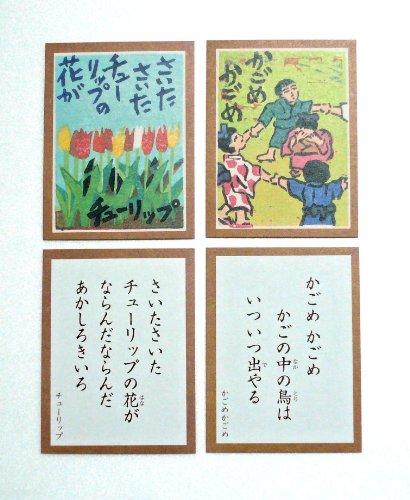 さいた
さいた
チュー
リップの
花が
チューリップ
かごめ
かごめ
さいたさいた
チューリップの花が
はな
ならんだならんだ
あかしろきいろ
チューリップ
かごめ かごめ
かごの中の鳥は
なか
とり
いついつ出やる
で
かごめかごめ